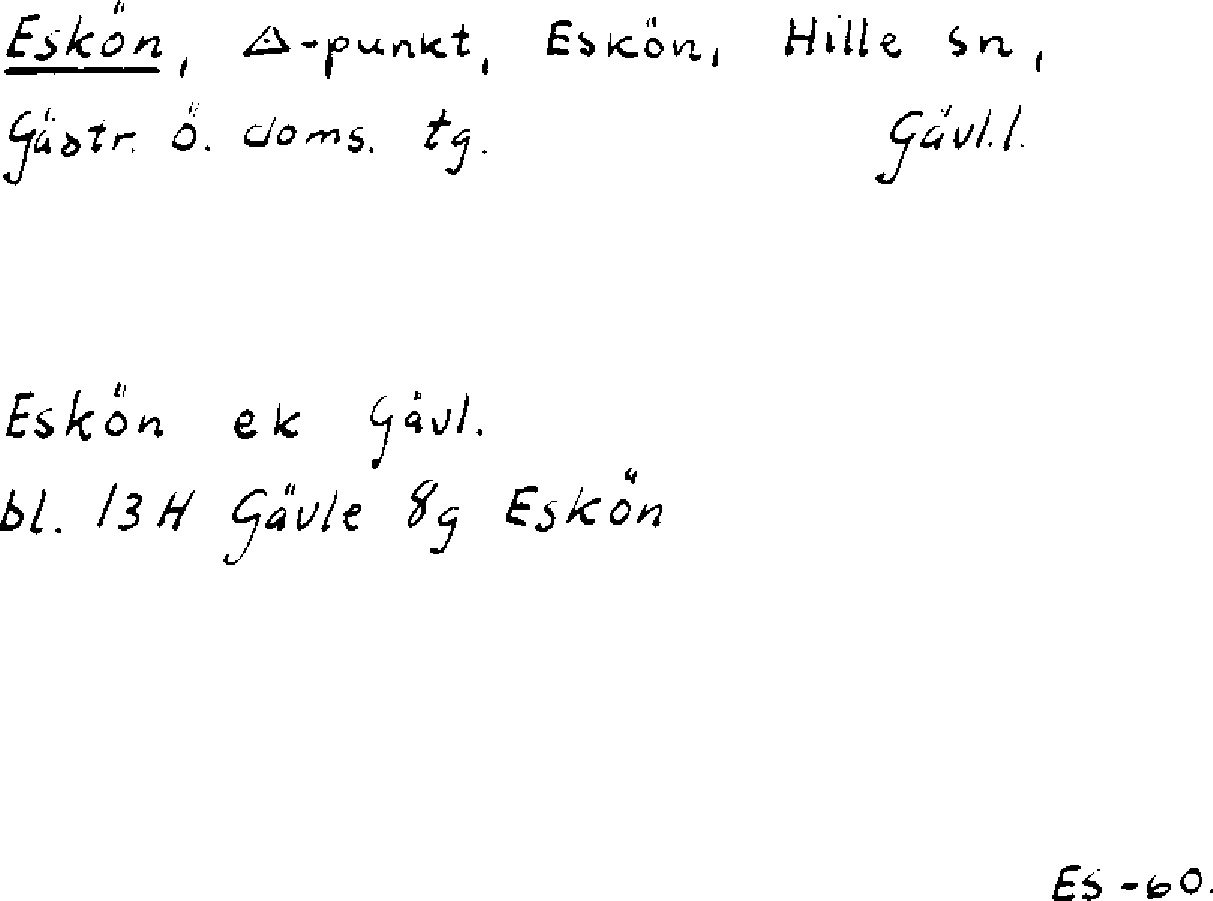 Eskön, △-punkt, Eskön, Hille sn,
Gästr. ö. doms. tg. Gävl.l.
Eskön ek Gävl.
bl. 13H Gävle 8g Eskön
ES -60.